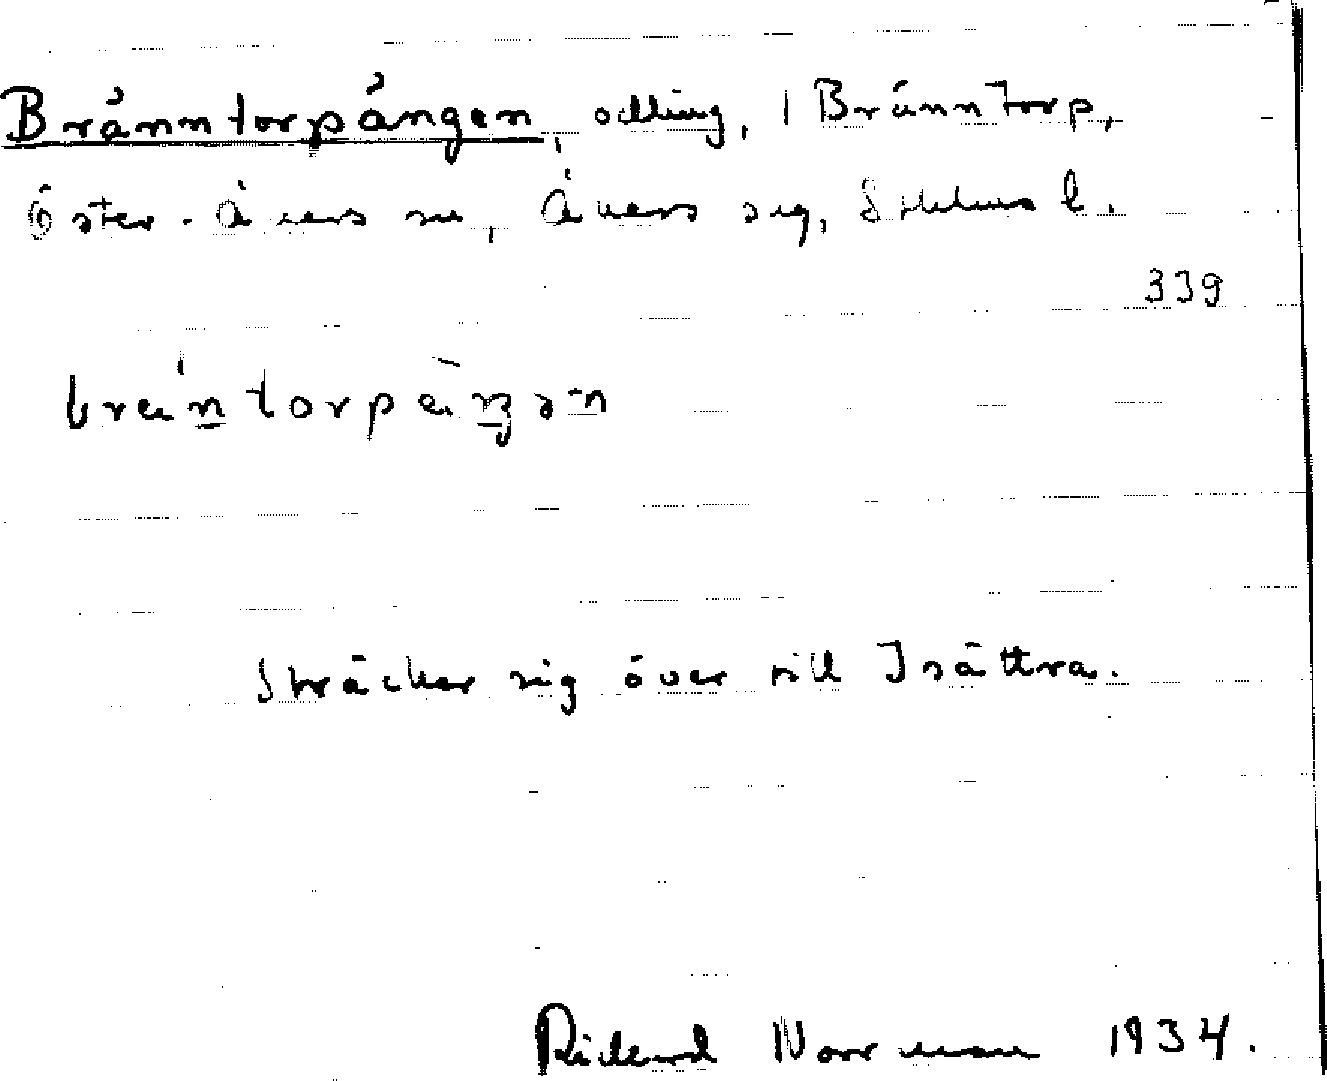 Bränntorpängen, odling, 1 Bränntorp,
Öster-Åkers sn, Åkers sg, Sthlms l.
339
Sträcker sig över till Isättra.
Rickard Norrman 1934.